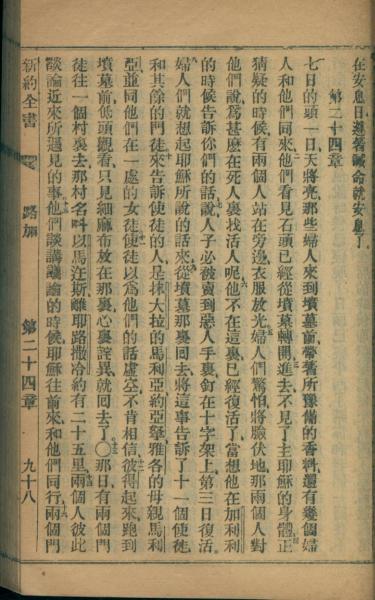 在安息日遵著誡命就安息了
第二十四章
七日的頭一日天將亮那些婦人來到墳墓前帶著所豫備的香料還有幾個婦
人和他們同來他們看見石頭已經從墳墓轉開進去不見了主耶穌的身體正
猜疑的時候有兩個人站在旁邊衣服放光婦人們驚怕將臉伏地那兩個人對
他們說爲甚麽在死人裏找活人呢他不在這裏已經復活了當想他在加利利
的時候告訴你們的話說人子必被賣到惡人手裏釘在十字架上第三日復活
婦人們就想起耶穌所說的話來從墳墓那裏回去將這事告訴了十一個使徒
和其餘的門徒來告訴使徒的人是抹大拉的馬利亞約亞拏雅各的母親馬利
亞並同他們在一處的女徒使徒以爲他們的話虛空不肯相信彼得起來跑到
墳墓前低頭觀看只見細麻布放在那裏心裏詫異就回去了〇那日有兩個門
徒往一個村裏去那村名叫以馬洰斯離耶路撒冷約有二十五里兩個人彼此
談論近來所遇見的事他們談講議論的時候耶穌往前來和他們同行兩個門
新約全書 路加 第二十四章 九十八